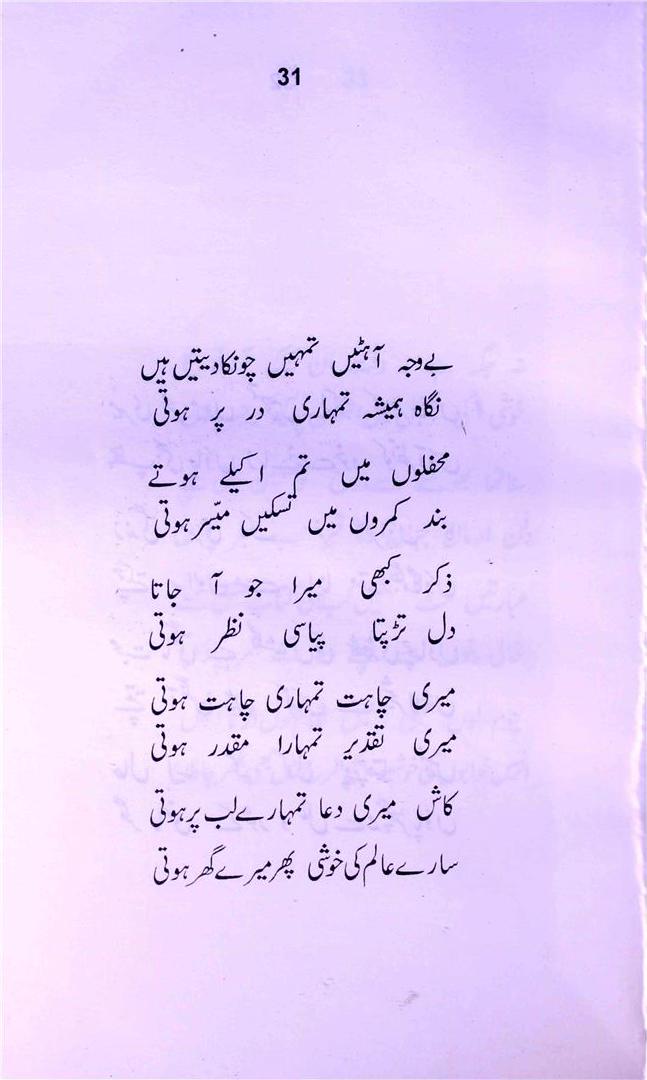 31
بے وجہ آہٹیں تمہیں چونکا دیتیں ہیں
نگاہ ہمیشہ تمہاری در پر ہوتی
محفلوں میں تم اکیلے ہوتے
بند کمروں میں تسکیں میّسر ہوتی
ذکر کبھی میرا جو آ جاتا
دل تڑپتا پیاسی نظر ہوتی
میری چاہت تمہاری چاہت ہوتی
میری تقدیر تمہارا مقدر ہوتی
کاش میری دعا تمہارے لب پر ہوتی
سارے عالم کی خوشی پھر میرے گھر ہوتی